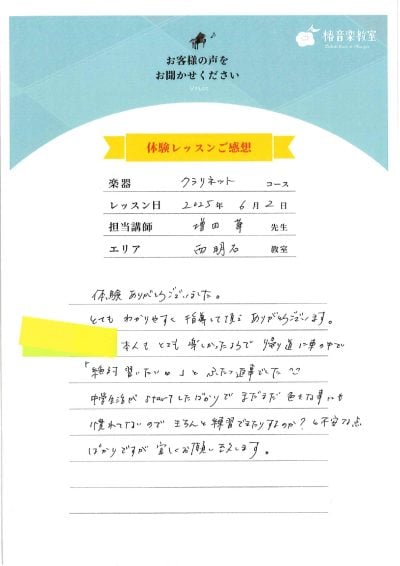 お客様の声を
お聞かせください
Voices
椿音楽教室
体験レッスンご感想
楽器 クラリネット コース
レッスン日 2025年 6月 2日
担当講師 増田 先生
エリア 西明石 教室
体験ありがとうございました。
とても わかりやすく 指導して頂き ありがとうございます。
本人も とても 楽しかったようで 帰り道に車の中で
「絶対 習いたい」と ふたつ返事でした
中学生活が startしたばかりで まだまだ 色々な事にも
慣れてないので きちんと練習できたりするのか?と不安な点
ばかりですが 宜しくお願い致します。